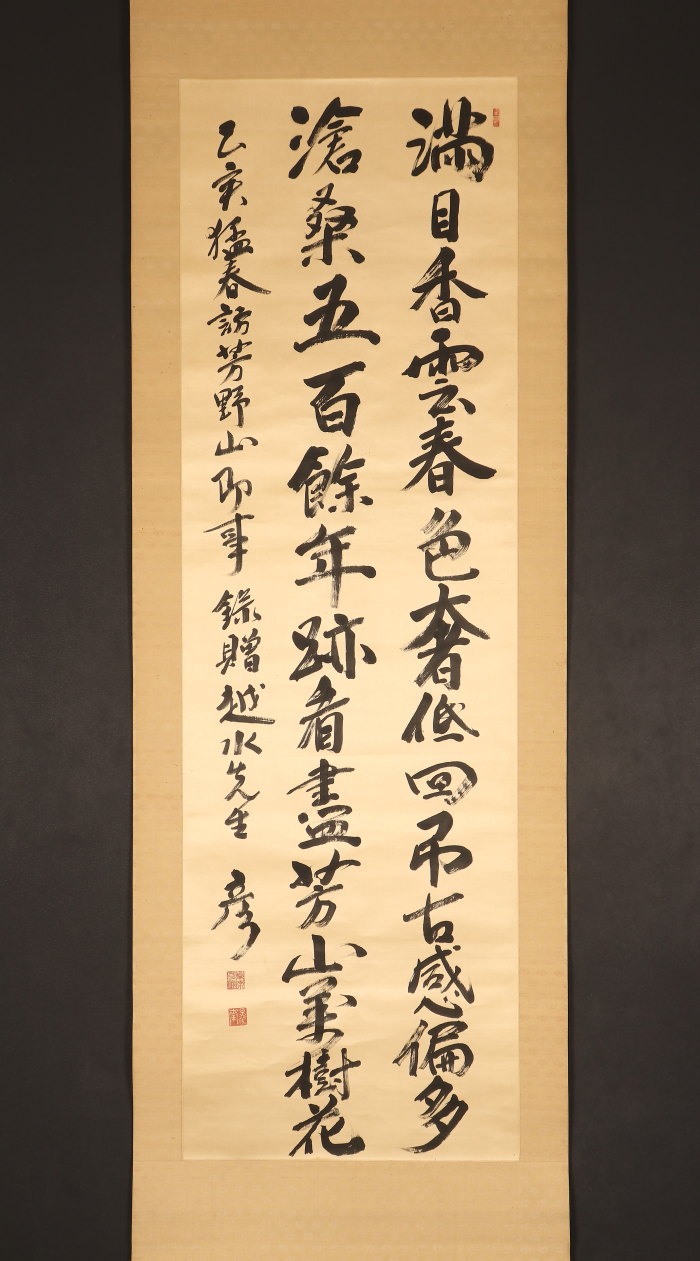 滿目香雲春色奢低回弔古感偏多
滄桑五百餘年跡看盡芳山萬樹花
乙亥猛春訪芳野山即事 錄贈越水先生 彥